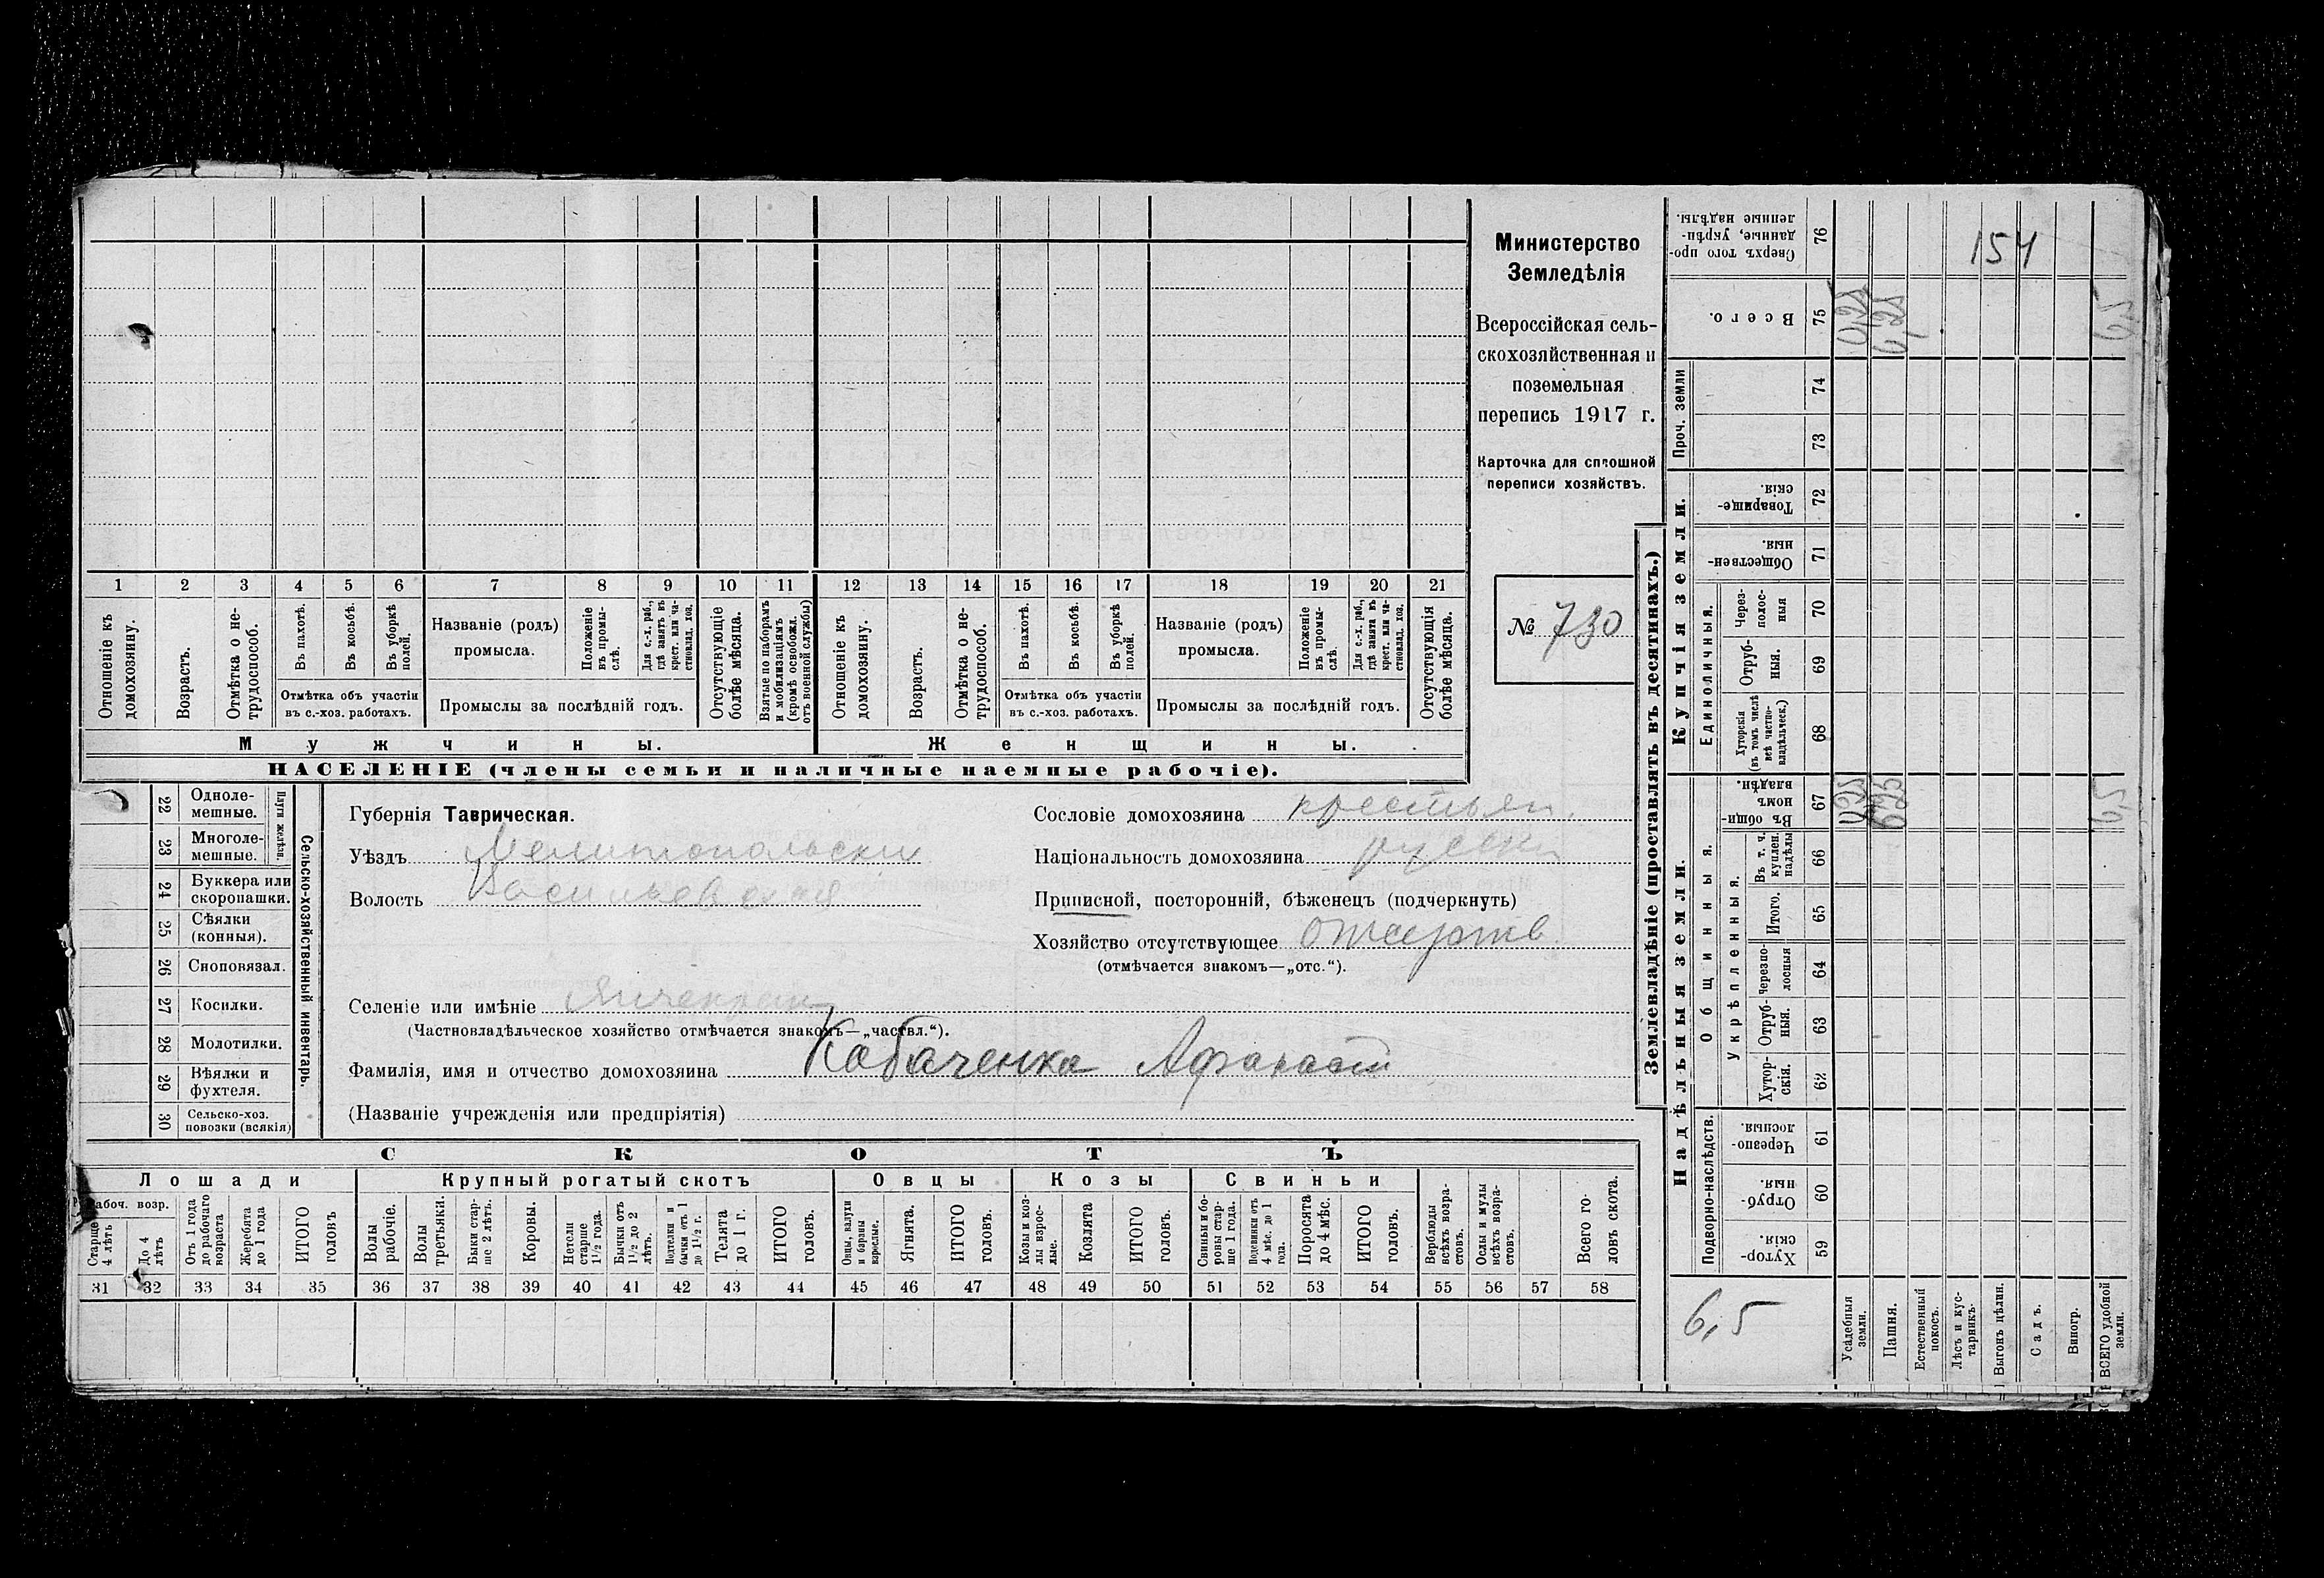 Министерство
Земледѣлія
Всероссійская сель-
скохозяйственная и
поземельная
перепись 1917 г.
Карточка для сплошной
переписи хозяйствъ.
№ 730
1 2 3 4 5 6 7 8 9 10 11 12 13 14 15 16 17 18 19 20 21
Отношеніе къ домохозяину.
Возрастъ.
Отмѣтка о не-
трудоспособ.
Въ пахотѣ.
Въ косьбѣ.
Въ уборкѣ полей.
Отмѣтка объ участіи
въ с.-хоз. работахъ.
Названіе (родъ)
промысла.
Положеніе
въ промы-
слѣ.
Для с.-х. раб.,
гдѣ занятъ въ
крест. или ча-
стновлад. хоз.
Промыслы за послѣдній годъ.
Отсутствующіе
болѣе мѣсяца.
Взятые по наборамъ
и мобилизаціямъ
(кромѣ освобожл.
отъ военной службы)
Отношеніе къ
домохозяину.
Возрастъ.
Отмѣтка о не-
трудоспособ.
Въ пахотѣ.
Въ косьбѣ.
Въ уборкѣ
полей.
Отмѣтка объ участіи
въ с.-хоз. работахъ.
Названіе (родъ)
промысла.
Положеніе
въ промы-
слѣ.
Для с.-х. раб.,
гдѣ занята въ
крест. или ча-
стновлад. хоз.
Промыслы за послѣдній годъ.
Отсутствующія
болѣе мѣсяца.
Мужчины.
Женщины.
НАСЕЛЕНІЕ (члены семьи и наличные наемные рабочіе).
22 Одноле-
мешные.
23 Многоле-
мешные.
Плуги желѣзн.
24 Буккера или
скоропашки.
25 Сѣялки
(конныя).
26 Сноповязал.
27 Косилки.
28 Молотилки.
29 Вѣялки и
фухтеля.
30 Сельско-хоз.
повозки (всякія)
Сельско-хозяйственный инвентарь.
Губернія Таврическая.
Уѣздъ Мелитопольски
Волость Васильевская
Сословіе домохозяина крестьян.
Національность домохозяина русски
Приписной, посторонній, бѣженецъ (подчеркнуть)
Хозяйство отсутствующее
(отмѣчается знакомъ—„отс.“).
Селеніе или имѣніе Янчекрак
(Частновладѣльческое хозяйство отмѣчается знакомъ—„частвл.“).
Фамилія, имя и отчество домохозяина Кабаченка Афанасіи
(Названіе учрежденія или предпріятія)
СКОТЪ
Лошади
Крупный рогатый скотъ
Овцы
Козы
Свиньи
Рабоч. возр.
Старше
4 лѣтъ
До 4
лѣтъ
Отъ 1 года
до рабочаго
возраста
Жеребята
до 1 года
ИТОГО
головъ
Волы
рабочіе.
Волы
третьяки.
Быки стар-
ше 2 лѣтъ.
Коровы.
Нетели
старше
1½ года.
Бычки отъ
1½ до 2
лѣтъ.
Подтелки и
бычки отъ 1
до 1½ г.
Телята
до 1 г.
ИТОГО
головъ.
Овцы, валухи
и бараны
взрослые.
Ягнята.
ИТОГО
головъ.
Козы и коз-
лы взрос-
лые.
Козлята
ИТОГО
головъ.
Свиньи и бо-
ровы стар-
ше 1 года.
Подсвинки отъ
4 мѣс. до 1
года.
Поросята
до 4 мѣс.
ИТОГО
головъ.
Верблюды
всѣхъ возра-
стовъ.
Ослы и мулы
всѣхъ возра-
стовъ.
Всего го-
ловъ скота.
31 32 33 34 35 36 37 38 39 40 41 42 43 44 45 46 47 48 49 50 51 52 53 54 55 56 57 58
Землевладѣніе (проставлять въ десятинахъ.)
Купчія земли.
Надѣльныя земли.
Сверхъ того про-
данные, укрѣп-
ленные надѣлы.
76
154
Всего.
75
0,25
6,25
6,5
Проч. земли
74
73
Товарище-
скія.
72
Обществен-
ныя.
71
Единоличныя.
Через-
полос-
ныя
70
Отруб-
ныя.
69
Хуторскія
(въ томъ числѣ
всѣ частно-
владѣльческ.)
68
Общинныя.
Въ общи-
номъ
владѣн.
67
0,25
6,25
6,5
Укрѣпленныя.
Въ т. ч.
куплен.
надѣлы
66
Итого.
65
Черезпо-
лосныя
64
Отруб-
ныя.
63
Хутор-
скія.
62
Подворно-наслѣдств.
Черезпо-
лосныя.
61
Отруб-
ныя.
60
Хутор-
скія.
59
6,5
Усадебныя
земли.
Пашня.
Естественный
покосъ.
Лѣсъ и кус-
тарникъ.
Выгонъ цѣлин.
Садъ.
Виногр.
ВСЕГО удобной
земли.